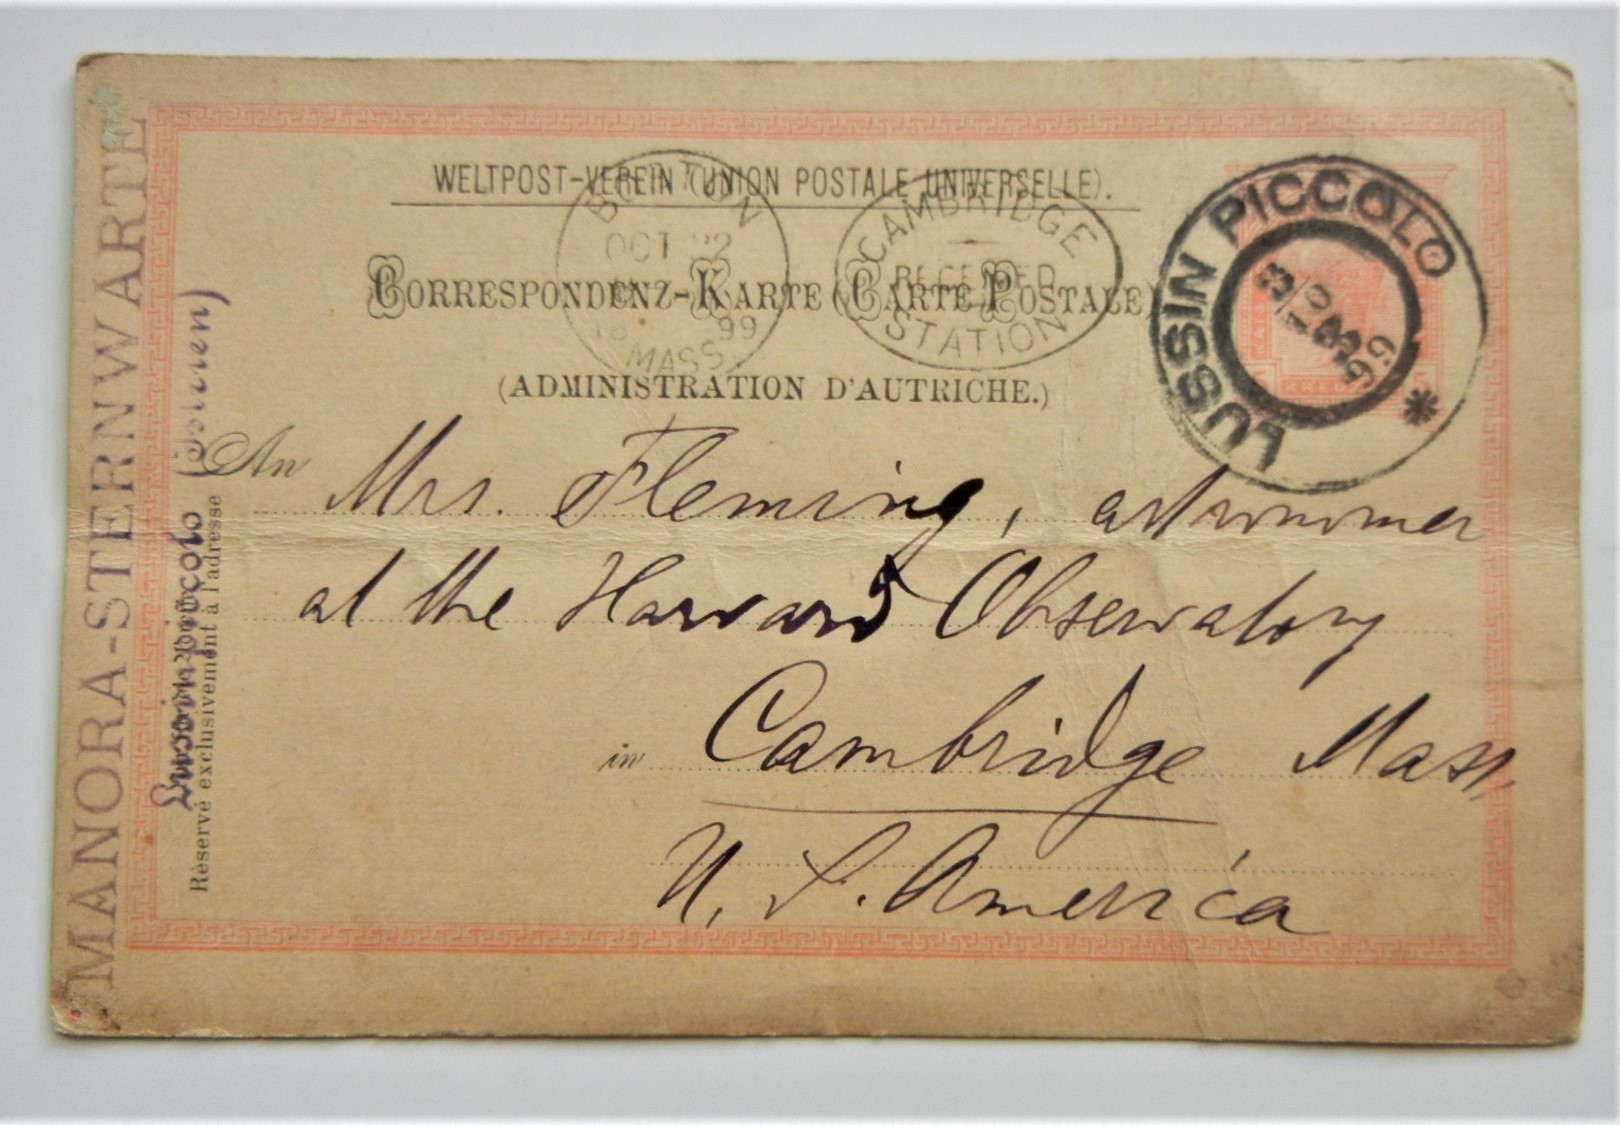 WELTPOST-VEREIN (UNION POSTALE UNIVERSELLE).
CORRESPONDENZ-KARTE (CARTE POSTALE)
(ADMINISTRATION D'AUTRICHE.)
BOSTON
OCT 22
99
MASS.
CAMBRIDGE
RECEIVED
STATION
LUSSIN PICCOLO
99
An Mrs. Fleming, astronomer
at the Harvard Observatory
in Cambridge Mass,
U. S. America
MANORA-STERNWARTE
Lussinpiccolo (Istrien)
Réservé exclusivement à l'adresse